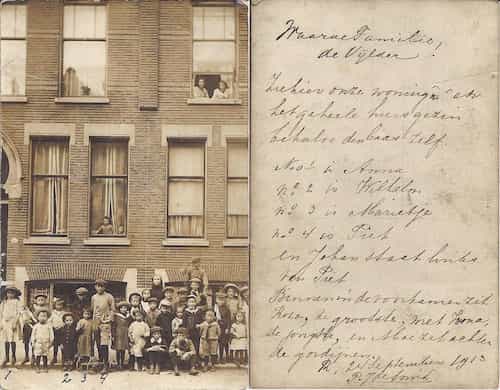 1 2 3 4
Waarde Familie,
de Vijlder
Ziehier onze woning en
het geheele huisgezin
behalve den baas zelf.
No 1 is Anna
no 2 is Willem
no 3 is Marietje
no 4 is Piet
en Johan staat links
van Piet
Binnen in de voorkamer zet
de grootste met
de jongste, en achter
de gordijnen.
24 September 1913